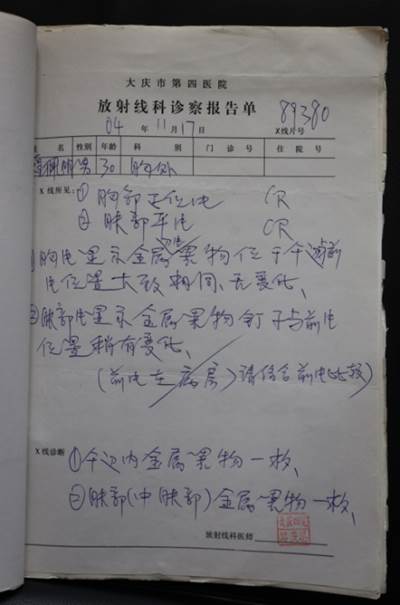 大庆市第四医院
放射线科诊察报告单
89380
04年11月17日 X线片号
名 性别 年龄 科别 门诊号 住院号
男 30 胸外
X线所见:①胸部正位片 CR
②腹部平片 CR
①胸片显示金属异物位于
片位置大致相同、无变化、
②腹部片显示金属异物钉子与前片
位置稍有变化、
(前片在病房)请结合前片比较)
X线诊断 ①内金属异物一枚、
②腹部(中腹部)金属异物一枚、
放射线科医师